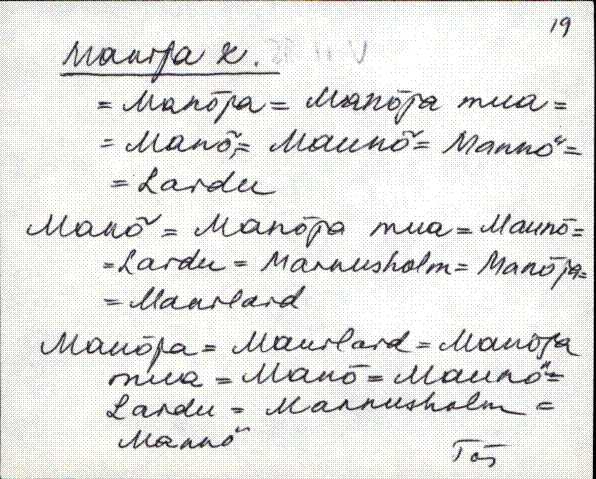 19
Manija k.
= Manõja = Manõja mua =
= Manõ, = Maunõ = Mannö =
= Laidu
Manõ = Manõja mua = Maunõ =
= Laidu = Mannusholm = Manõja =
= Manilaid
Manõja = Manilaid = Manõja
mua = Manõ = Maunõ =
Laidu = Mannusholm =
Mannö
Tõs